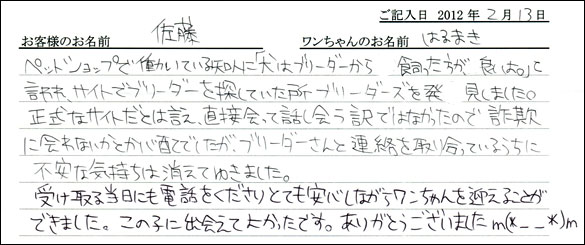 ご記入日 2012年2月13日
お客様のお名前 佐藤 ワンちゃんのお名前 はるまき
ペットショップで働いている知人に「犬はブリーダーから 飼った方が良いよ。」と
言われ、サイトでブリーダーを探していた所ブリーダーズを発 見しました。
正式なサイトだとは言え、直接会って話し会う訳ではなかったので詐欺
に会わないかとか心配でしたが、ブリーダーさんと連絡を取り合っているうちに
不安な気持ちは消えてゆきました。
受け取る当日にも電話をくださりとても安心しながらワンちゃんを迎えることが
できました。この子に出会えてよかったです。ありがとうございましたm(*_ _*)m